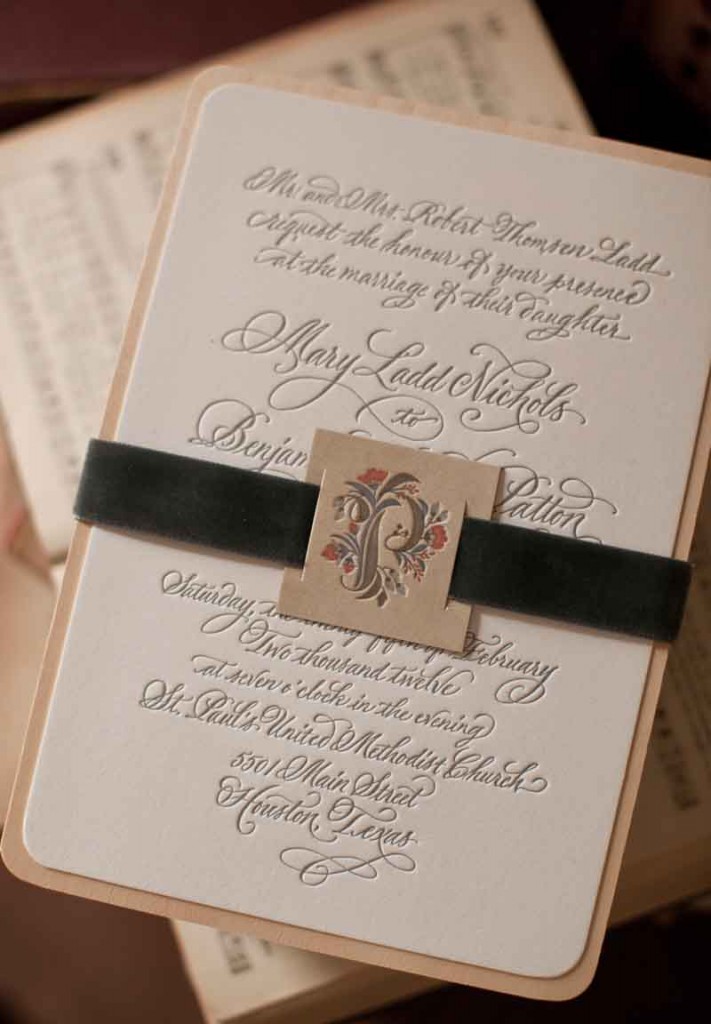 Mr. and Mrs. Robert Thomsen Ladd
request the honour of your presence
at the marriage of their daughter
Mary Ladd Nichols
to
Benjam Patton
P
Saturday, the twenty fifth of February
Two thousand twelve
at seven o'clock in the evening
St. Paul's United Methodist Church
5501 Main Street
Houston, Texas